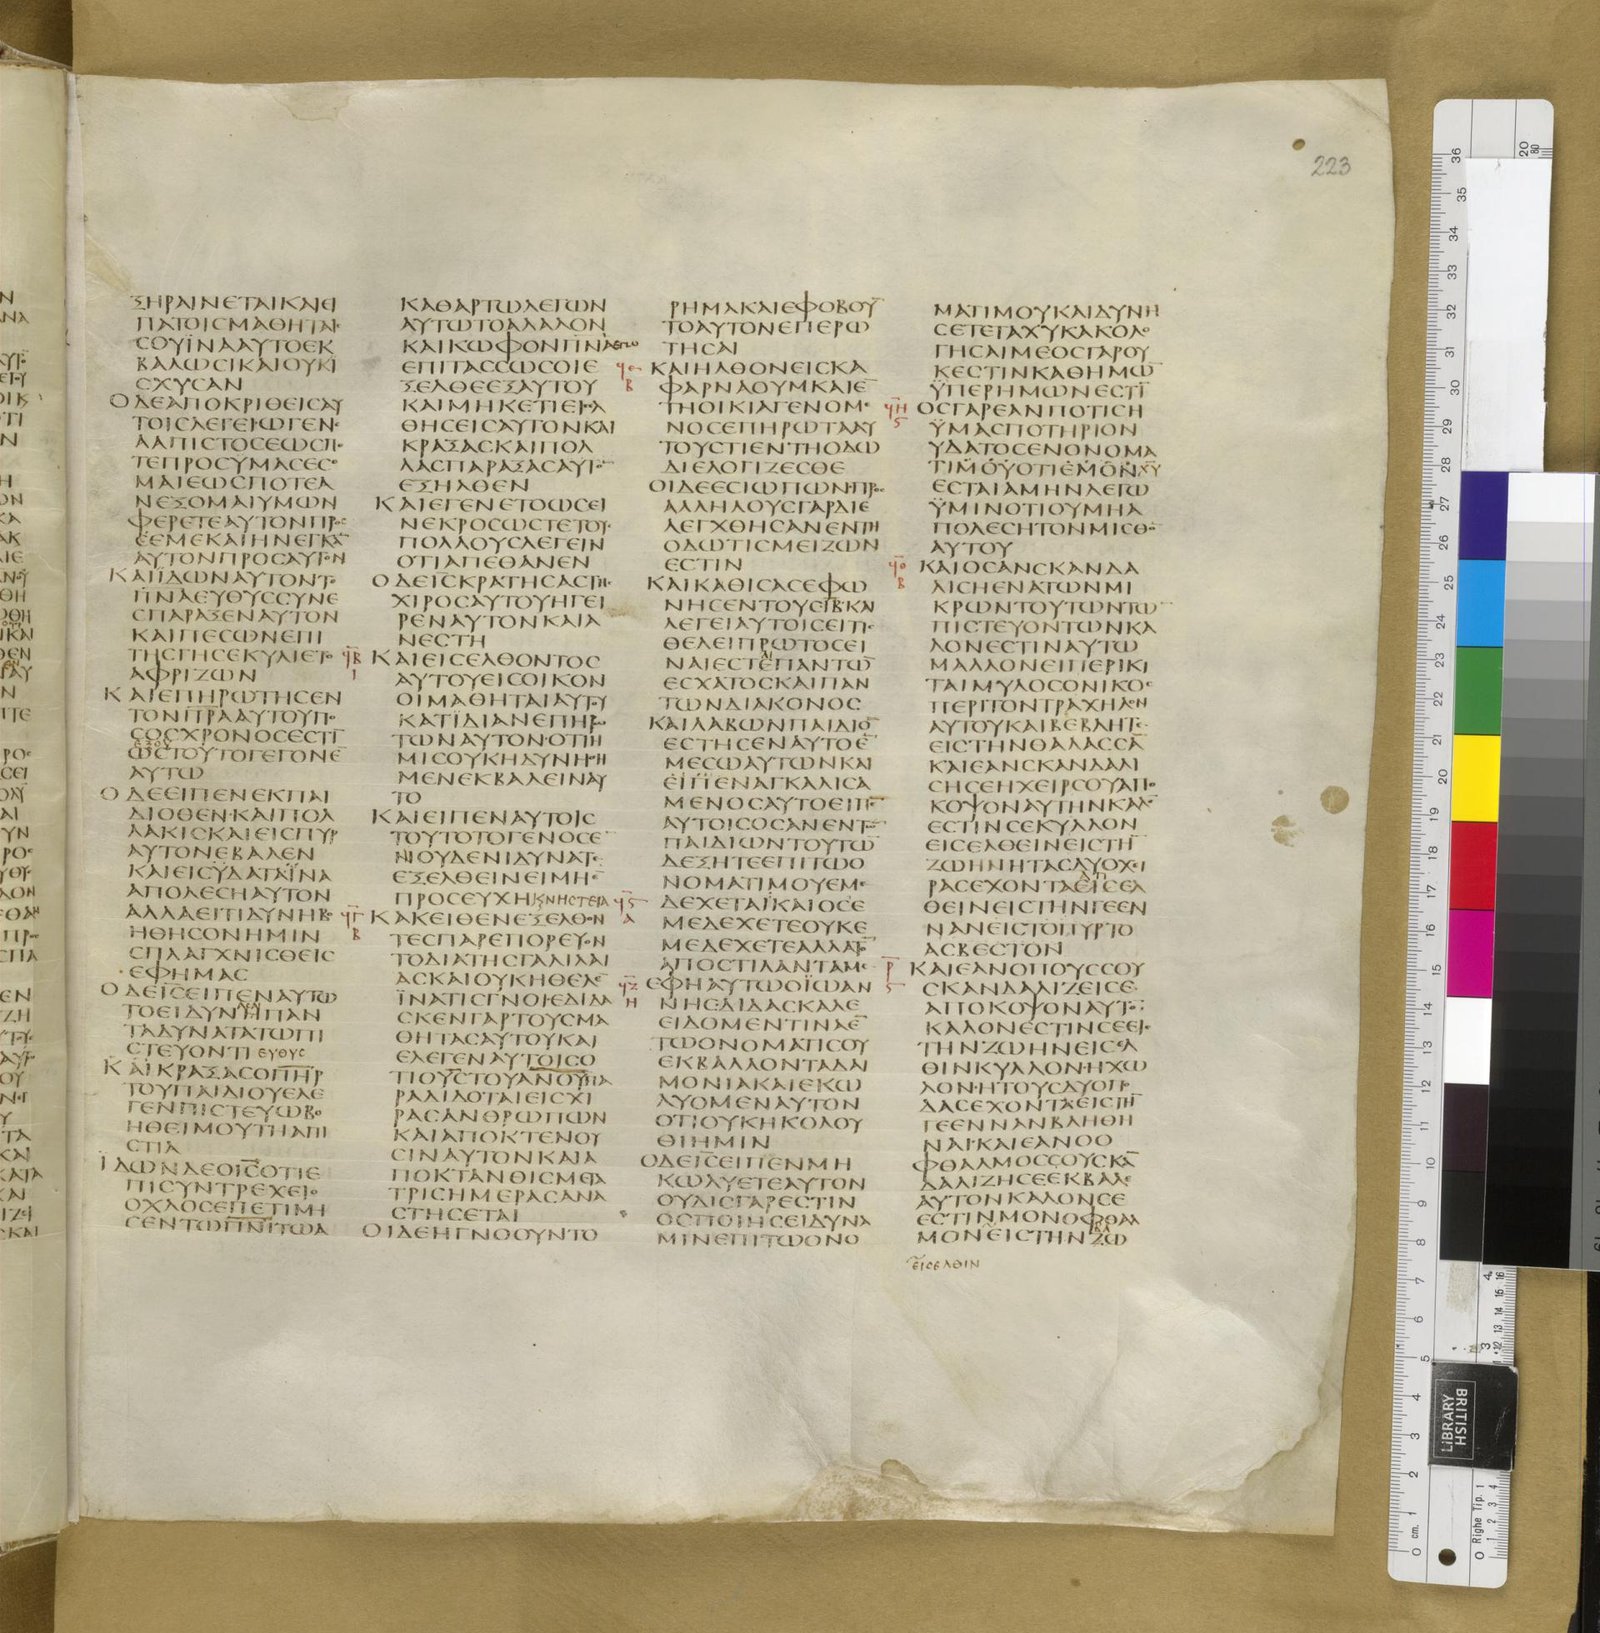 223
ΞΗΡΑΙΝΕΤΑΙΚΑΙΕΙ
ΠΑΤΟΙCΜΑΘΗΤΑΙ
CΟΥΪΝΑΑΥΤΟΕΚ
ΒΑΛΩCΙΚΑΙΟΥΚΙ
CΧΥCΑΝ
ΟΔΕΑΠΟΚΡΙΘΕΙCΑΥ
ΤΟΙCΛΕΓΕΙΩΓΕΝΕ
ΑΑΠΙCΤΟCΕΩCΠΟ
ΤΕΠΡΟCΥΜΑCΕCΟ
ΜΑΙΕΩCΠΟΤΕΑ
ΝΕΞΟΜΑΙΥΜΩΝ
ΦΕΡΕΤΕΑΥΤΟΝΠΡΟC
ΕΜΕΚΑΙΗΝΕΓΚΑ̅
ΑΥΤΟΝΠΡΟCΑΥΤΟΝ
ΚΑΙΪΔΩΝΑΥΤΟΝΤΟ
Π̅Ν̅ΑΕΥΘΥCCΥΝΕ
CΠΑΡΑΞΕΝΑΥΤΟΝ
ΚΑΙΠΕCΩΝΕΠΙ
ΤΗCΓΗCΕΚΥΛΙΕΤΟ
ΑΦΡΙΖΩΝ
ΚΑΙΕΠΗΡΩΤΗCΕΝ
ΤΟΝΠ̅Ρ̅ΑΑΥΤΟΥΠΟ
CΟCΧΡΟΝΟCΕCΤΙ̅
ΕΞΟΥ
ΩCΤΟΥΤΟΓΕΓΟΝΕ̅
ΑΥΤΩ
ΟΔΕΕΙΠΕΝΕΚΠΑΙ
ΔΙΟΘΕΝΚΑΙΠΟΛ
ΛΑΚΙCΚΑΙΕΙCΠΥΡ
ΑΥΤΟΝΕΒΑΛΕΝ
ΚΑΙΕΙCΫΔΑΤΑΪΝΑ
ΑΠΟΛΕCΗΑΥΤΟΝ
ΑΛΛΑΕΙΤΙΔΥΝΗΒΟ
ΗΘΗCΟΝΗΜΙΝ
CΠΛΑΓΧΝΙCΘΕΙC
ΕΦΗΜΑC
ΟΔΕΙ̅C̅ΕΙΠΕΝΑΥΤΩ
ΤΟΕΙΔΥΝΗΠΑΝ
ΤΑΔΥΝΑΤΑΤΩΠΙ
CΤΕΥΟΝΤΙ ΕΥΘΥC
ΚΑΙΚΡΑΞΑCΟΠ̅Η̅Ρ̅
ΤΟΥΠΑΙΔΙΟΥΕΛΕ
ΓΕΝΠΙCΤΕΥΩΒΟ
ΗΘΕΙΜΟΥΤΗΑΠΙ
CΤΙΑ
ΪΔΩΝΔΕΟΙ̅C̅ΟΤΙΕ
ΠΙCΥΝΤΡΕΧΕΙΟ
ΟΧΛΟCΕΠΕΤΙΜΗ
CΕΝΤΩΠ̅Ν̅Ι̅ΤΩΑ
ΚΑΘΑΡΤΩΛΕΓΩΝ
ΑΥΤΩΤΟΑΛΑΛΟΝ
ΚΑΙΚΩΦΟΝΠ̅Ν̅ΑΕΓΩ
ΕΠΙΤΑCCΩCΟΙΕ
ΞΕΛΘΕΕΞΑΥΤΟΥ
ΚΑΙΜΗΚΕΤΙΕΙCΕΛ
ΘΗCΕΙCΑΥΤΟΝΚΑΙ
ΚΡΑΞΑCΚΑΙΠΟΛ
ΛΑCΠΑΡΑΞΑCΑΥΤΟ̅
ΕΞΗΛΘΕΝ
ΚΑΙΕΓΕΝΕΤΟΩCΕΙ
ΝΕΚΡΟCΩCΤΕΤΟΥC
ΠΟΛΛΟΥCΛΕΓΕΙΝ
ΟΤΙΑΠΕΘΑΝΕΝ
ΟΔΕΙ̅C̅ΚΡΑΤΗCΑCΤΗC
ΧΙΡΟCΑΥΤΟΥΗΓΕΙ
ΡΕΝΑΥΤΟΝΚΑΙΑ
ΝΕCΤΗ
ϥΒ Ι
ΚΑΙΕΙCΕΛΘΟΝΤΟC
ΑΥΤΟΥΕΙCΟΙΚΟΝ
ΟΙΜΑΘΗΤΑΙΑΥΤΟΥ
ΚΑΤΪΔΙΑΝΕΠΗΡΩ
ΤΩΝΑΥΤΟΝΟΤΙΗ
ΜΙCΟΥΚΗΔΥΝΗΘΗ
ΜΕΝΕΚΒΑΛΕΙΝΑΥ
ΤΟ
ΚΑΙΕΙΠΕΝΑΥΤΟΙC
ΤΟΥΤΟΤΟΓΕΝΟCΕ̅
ΝΟΥΔΕΝΙΔΥΝΑΤΑΙ
ΕΞΕΛΘΕΙΝΕΙΜΗΕ̅
ΠΡΟCΕΥΧΗ ΚΝΗCΤΕΙΑ
ϥΓ Β
ΚΑΚΕΙΘΕΝΕΞΕΛΘΟΝ
ΤΕCΠΑΡΕΠΟΡΕΥΟΝ
ΤΟΔΙΑΤΗCΓΑΛΙΛΑΙ
ΑCΚΑΙΟΥΚΗΘΕΛΕ̅
ΪΝΑΤΙCΓΝΟΙΕΔΙΔΑ
CΚΕΝΓΑΡΤΟΥCΜΑ
ΘΗΤΑCΑΥΤΟΥΚΑΙ
ΕΛΕΓΕΝΑΥΤΟΙCΟ
Τ̅Ι̅Ο̅Υ̅C̅ΤΟΥΑ̅Ν̅Ο̅Υ̅ΠΑ
ΡΑΔΙΔΟΤΑΙΕΙCΧΙ
ΡΑCΑΝΘΡΩΠΩΝ
ΚΑΙΑΠΟΚΤΕΝΟΥ
CΙΝΑΥΤΟΝΚΑΙΑ
ΠΟΚΤΑΝΘΙCΜΕΤΑ
ΤΡΙCΗΜΕΡΑCΑΝΑ
CΤΗCΕΤΑΙ
ΟΙΔΕΗΓΝΟΟΥΝΤΟ
ΡΗΜΑΚΑΙΕΦΟΒΟΥ̅
ΤΟΑΥΤΟΝΕΠΕΡΩ
ΤΗCΑΙ
ΚΑΙΗΛΘΟΝΕΙCΚΑ
ΦΑΡΝΑΟΥΜΚΑΙΕ̅
ΤΗΟΙΚΙΑΓΕΝΟΜΕ
ΝΟCΕΠΗΡΩΤΑΑΥ
ΤΟΥCΤΙΕΝΤΗΟΔΩ
ΔΙΕΛΟΓΙΖΕCΘΕ
ΟΙΔΕΕCΙΩΠΩΝΠΡΟC
ΑΛΛΗΛΟΥCΓΑΡΔΙΕ
ΛΕΓΧΘΗCΑΝΕΝΤΗ
ΟΔΩΤΙCΜΕΙΖΩΝ
ΕCΤΙΝ
ΚΑΙΚΑΘΙCΑCΕΦΩ
ΝΗCΕΝΤΟΥCΙΒΚΑΙ
ΛΕΓΕΙΑΥΤΟΙCΕΙΤΙC
ΘΕΛΕΙΠΡΩΤΟCΕΙ
ΝΑΙΕCΤΕΠΑΝΤΩ̅
ΕCΧΑΤΟCΚΑΙΠΑΝ
ΤΩΝΔΙΑΚΟΝΟC
ΚΑΙΛΑΒΩΝΠΑΙΔΙΟ̅
ΕCΤΗCΕΝΑΥΤΟΕ̅
ΜΕCΩΑΥΤΩΝΚΑΙ
ΕΙΠΕΝΑΓΚΑΛΙCΑ
ΜΕΝΟCΑΥΤΟΕΙΠΕ̅
ΑΥΤΟΙCΟCΑΝΕΝΤΩ̅
ΠΑΙΔΙΩΝΤΟΥΤΩ̅
ΔΕΞΗΤΕΕΠΙΤΩΟ
ΝΟΜΑΤΙΜΟΥΕΜΕ
ΔΕΧΕΤΑΙΚΑΙΟCΕ
ΜΕΔΕΧΕΤΕΟΥΚΕ
ΜΕΔΕΧΕΤΕΑΛΛΑΤΟ̅
ΑΠΟCΤΙΛΑΝΤΑΜΕ
ϥΖ Η
ΕΦΗΑΥΤΩΟΪΩΑΝ
ΝΗCΔΙΔΑCΚΑΛΕ
ΕΙΔΟΜΕΝΤΙΝΑΕ̅
ΤΩΟΝΟΜΑΤΙCΟΥ
ΕΚΒΑΛΛΟΝΤΑΔΑΙ
ΜΟΝΙΑΚΑΙΕΚΩ
ΛΥΟΜΕΝΑΥΤΟΝ
ΟΤΙΟΥΚΗΚΟΛΟΥ
ΘΙΗΜΙΝ
ΟΔΕΙ̅C̅ΕΙΠΕΝΜΗ
ΚΩΛΥΕΤΕΑΥΤΟΝ
ΟΥΔΙCΓΑΡΕCΤΙΝ
ΟCΠΟΙΗCΕΙΔΥΝΑ
ΜΙΝΕΠΙΤΩΟΝΟ
ΜΑΤΙΜΟΥΚΑΙΔΥΝΗ
CΕΤΕΤΑΧΥΚΑΚΟΛΟ
ΓΗCΑΙΜΕΟCΓΑΡΟΥ
ΚΕCΤΙΝΚΑΘΗΜΩ̅
ΫΠΕΡΗΜΩΝΕCΤΙ̅
ϥΗ
ΟCΓΑΡΕΑΝΠΟΤΙCΗ
ΫΜΑCΠΟΤΗΡΙΟΝ
ΥΔΑΤΟCΕΝΟΝΟΜΑ
ΤΙΜΟΥΟΤΙΕΜΟΝΧΥ
ΕCΤΑΙΑΜΗΝΛΕΓΩ
ΫΜΙΝΟΤΙΟΥΜΗΑ
ΠΟΛΕCΗΤΟΝΜΙCΘΟ̅
ΑΥΤΟΥ
ϥΘ Β
ΚΑΙΟCΑΝCΚΑΝΔΑ
ΛΙCΗΕΝΑΤΩΝΜΙ
ΚΡΩΝΤΟΥΤΩΝΤΩ̅
ΠΙCΤΕΥΟΝΤΩΝΚΑ
ΛΟΝΕCΤΙΝΑΥΤΩ
ΜΑΛΛΟΝΕΙΠΕΡΙΚΙ
ΤΑΙΜΥΛΟCΟΝΙΚΟC
ΠΕΡΙΤΟΝΤΡΑΧΗΛΟΝ
ΑΥΤΟΥΚΑΙΒΕΒΛΗΤΑΙ
ΕΙCΤΗΝΘΑΛΑCCΑ̅
ΚΑΙΕΑΝCΚΑΝΔΑΛΙ
CΗCΕΗΧΕΙΡCΟΥΑΠΟ
ΚΟΨΟΝΑΥΤΗΝΚΑΛΟ̅
ΕCΤΙΝCΕΚΥΛΛΟΝ
ΕΙCΕΛΘΕΙΝΕΙCΤΗ̅
ΖΩΗΝΗΤΑCΔΥΟΧΙ
ΡΑCΕΧΟΝΤΑΕΙCΕΛ
ΘΕΙΝΕΙCΤΗΝΓΕΕΝ
ΝΑΝΕΙCΤΟΠΥΡΤΟ
ΑCΒΕCΤΟΝ
ΚΑΙΕΑΝΟΠΟΥCCΟΥ
CΚΑΝΔΑΛΙΖΕΙCΕ
ΑΠΟΚΟΨΟΝΑΥΤΟ̅
ΚΑΛΟΝΕCΤΙΝCΕΕΙC
ΤΗΝΖΩΗΝΕΙCΕΛ
ΘΙΝΚΥΛΛΟΝΗΧΩ
ΛΟΝΗΤΟΥCΔΥΟΠΟ
ΔΑCΕΧΟΝΤΑΕΙCΤΗ̅
ΓΕΕΝΝΑΝΒΛΗΘΗ
ΝΑΙΚΑΙΕΑΝΟΟ
ΦΘΑΛΜΟCCΟΥCΚΑ̅
ΔΑΛΙΖΗCΕΕΚΒΑΛΕ
ΑΥΤΟΝΚΑΛΟΝCΕ
ΕCΤΙΝΜΟΝΟΦΘΑΛ
ΜΟΝΕΙCΤΗΝΖΩ
ΕΙCΕΛΘΙΝ
BRITISH
LIBRARY